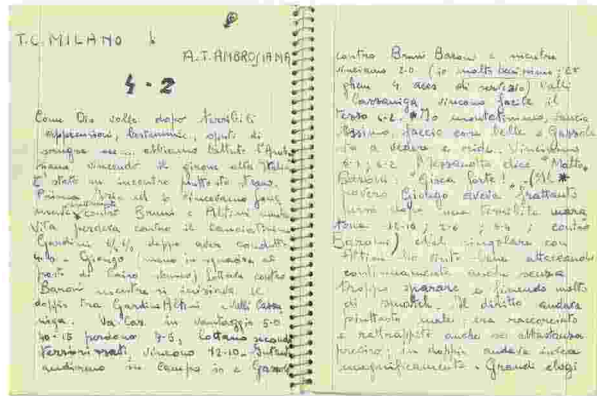 T.C. MILANO
A.T. AMBROSIANA
4-2
Come Dio volle dopo terribili
apprensioni, bestemmie, sputi di
sangue ecc... abbiamo battuto l'Ambro
siana vincendo il girone alta Italia
È stato un incontro piuttosto
Prima io e
mente contro Bruni e Altini mentre
Vita perdeva contro il
Gardini dopo aver condotto
4-0. Giongo, messo in squadra al
posto di Cairo lottato contro
Baroni mentre si iniziava il
doppio tra Gardini Altini e Valli Cassa
niga. Va. Cas. in vantaggio 5-0
40-15 perdono 7-5, lottano
terrorizzati, vincono 12-10. Intanto
andiamo in campo io e Gassola
contro Bruni Baroni e mentre
vinciamo 2-0 (io molto benissimo;
4 aces di servizio) Valli
Cassaniga vincono facile il
terzo 6-2. Io
faccio cose belle e Gassola
sta a vedere e ride. Vinciamo
6-1; 6-2. Mezzanotta dice "Matto,
Baroni: "Gioca forte!". (Il
povero Giongo aveva frattanto
perso dopo una terribile mara
tona 12-10; 2-6; 6-4; contro
Baroni) Nel singolare con
Altini ho vinto bene attaccando
continuamente anche senza
troppo sparare e facendo molto
di smatch. Il diritto andava
piuttosto male: era raccorciato
e rattrappito anche se abbastanza
preciso; in doppio andava invece
magnificamente. Grandi elogi